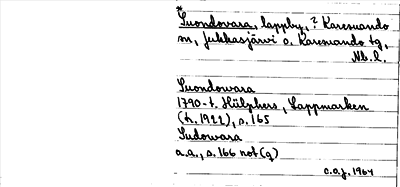 *Suondovara, lappby, ? Karesuando
sn, Jukkasjärvi o. Karesuando tg,
Nb.l.
Suondowara
1790-t. Hülphers, Lappmarken
(tr. 1922), s. 165
Sudowara
a.a., s. 166 not (q)
C.a.g. 1964